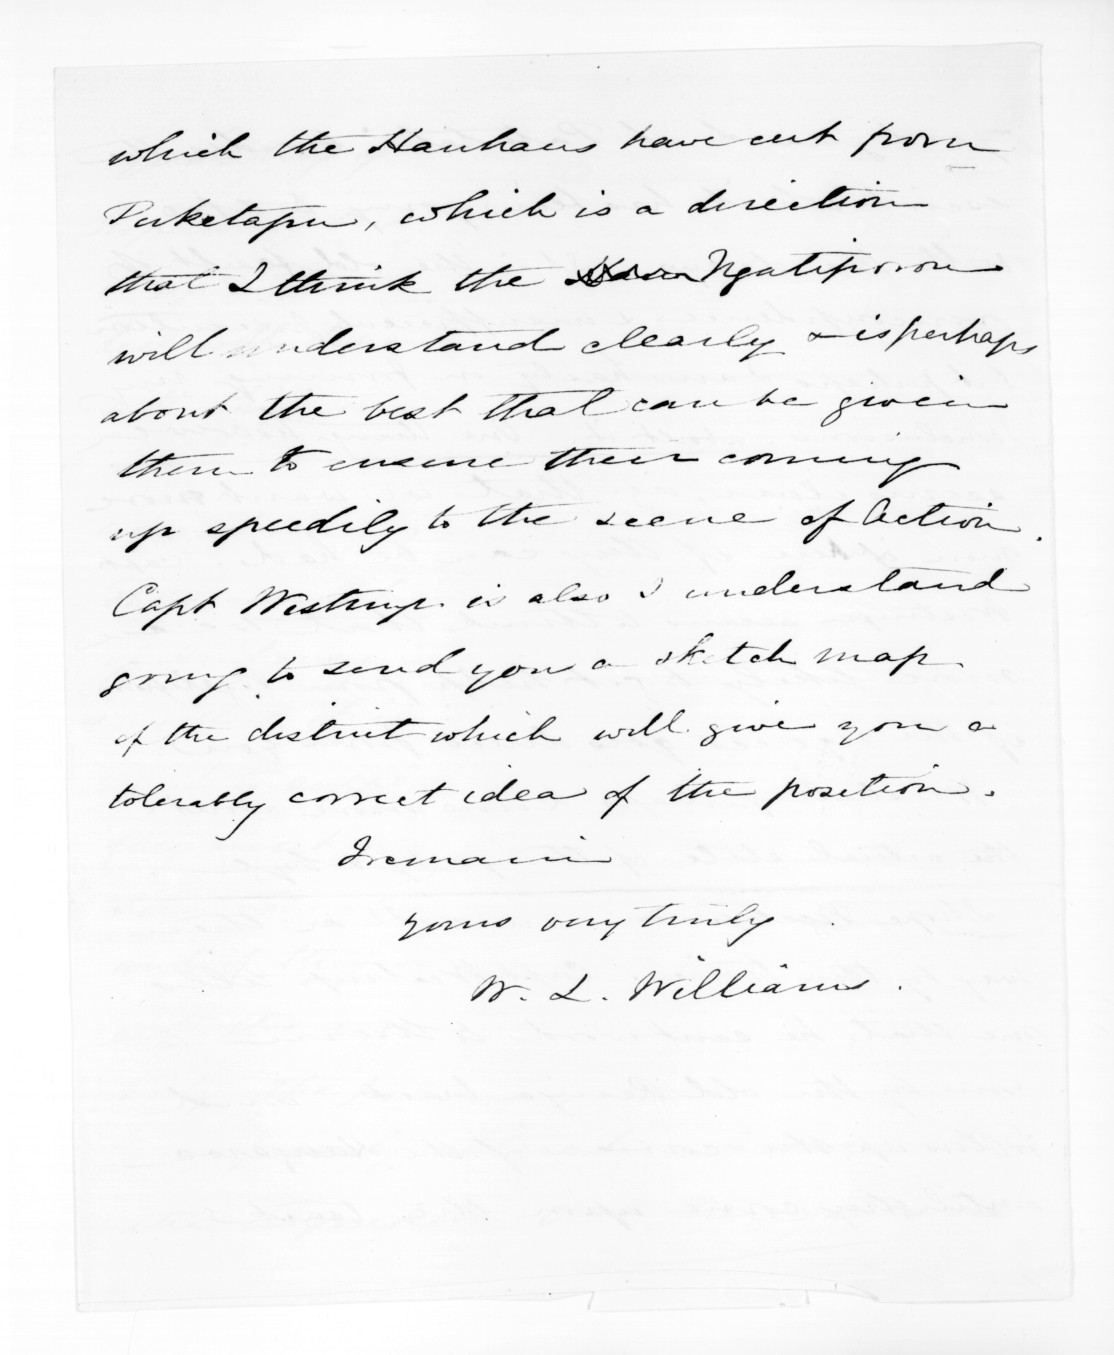 which the Hauhaus have cut from
Puketapu, which is a direction
that I think the Ngatiporou
will understand clearly & is perhaps
about the best that can be given
them to ensure their coming
up speedily to the scene of Action.
Capt Westrup is also I understand
going to send you a sketch map
of the district which will give you a
tolerably correct idea of the position.
I remain
yours very truly
W. L. Williams.